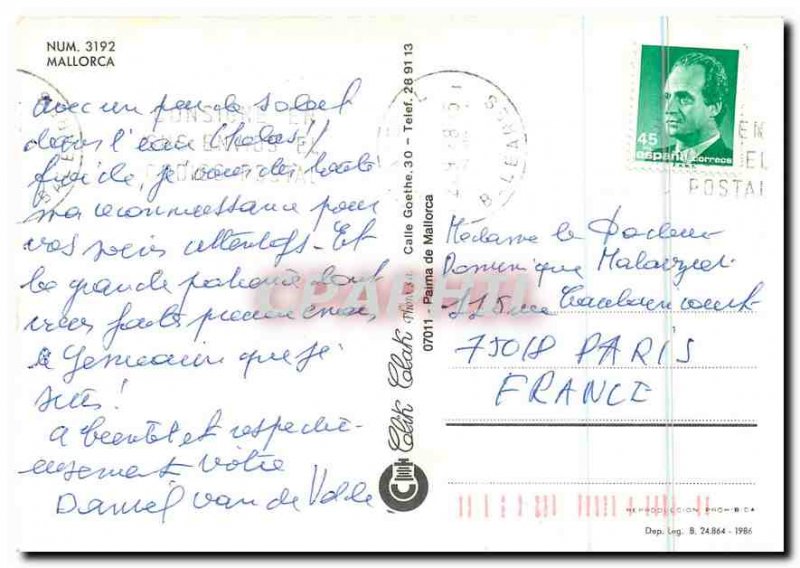 NUM. 3192
MALLORCA
avec un peu de soleil
dans l'eau (hélas!)
froide, je vous dis toute
ma reconnaissance pour
vos soins attentifs. Et
la grande patience dont
vous faites preuve envers
le Germain que je
suis!
A bientôt et respectu-
eusement votre
Daniel van de Velde
Clik Clak
Calle Goethe, 30 - Telef. 28 91 13
07011 - Palma de Mallorca
CPAPHIL
CONSIGNE EN
POSTAL
BALEARES
45
españa correos
EN
EL
POSTAL
Madame le Docteur
Dominique
115 rue Caulaincourt
75018 PARIS
FRANCE
REPRODUCCION PROHIBIDA
Dep. Leg. B. 24.864 - 1986